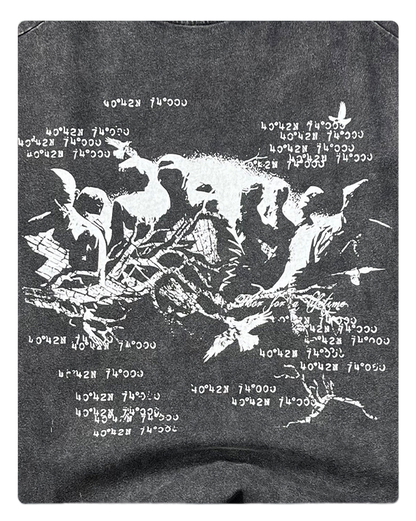 40°42N 74°000
40°42N 74°000
40°42N 74°000
40°42N 74°000
40°42N 74°000
40°42N 74°000
40°42N 74°000
40°42N 74°000
for a lifetime
40°42N 74°000
40°42N 74°000
40°42N 74°000
40°42N 74°000
40°42N 74°000
40°42N 74°000
40°42N 74°000
40°42N 74°000
40°42N 74°000
40°42N 74°000
40°42N 74°000
40°42N 74°000
40°42N 74°000
40°42N 74°000